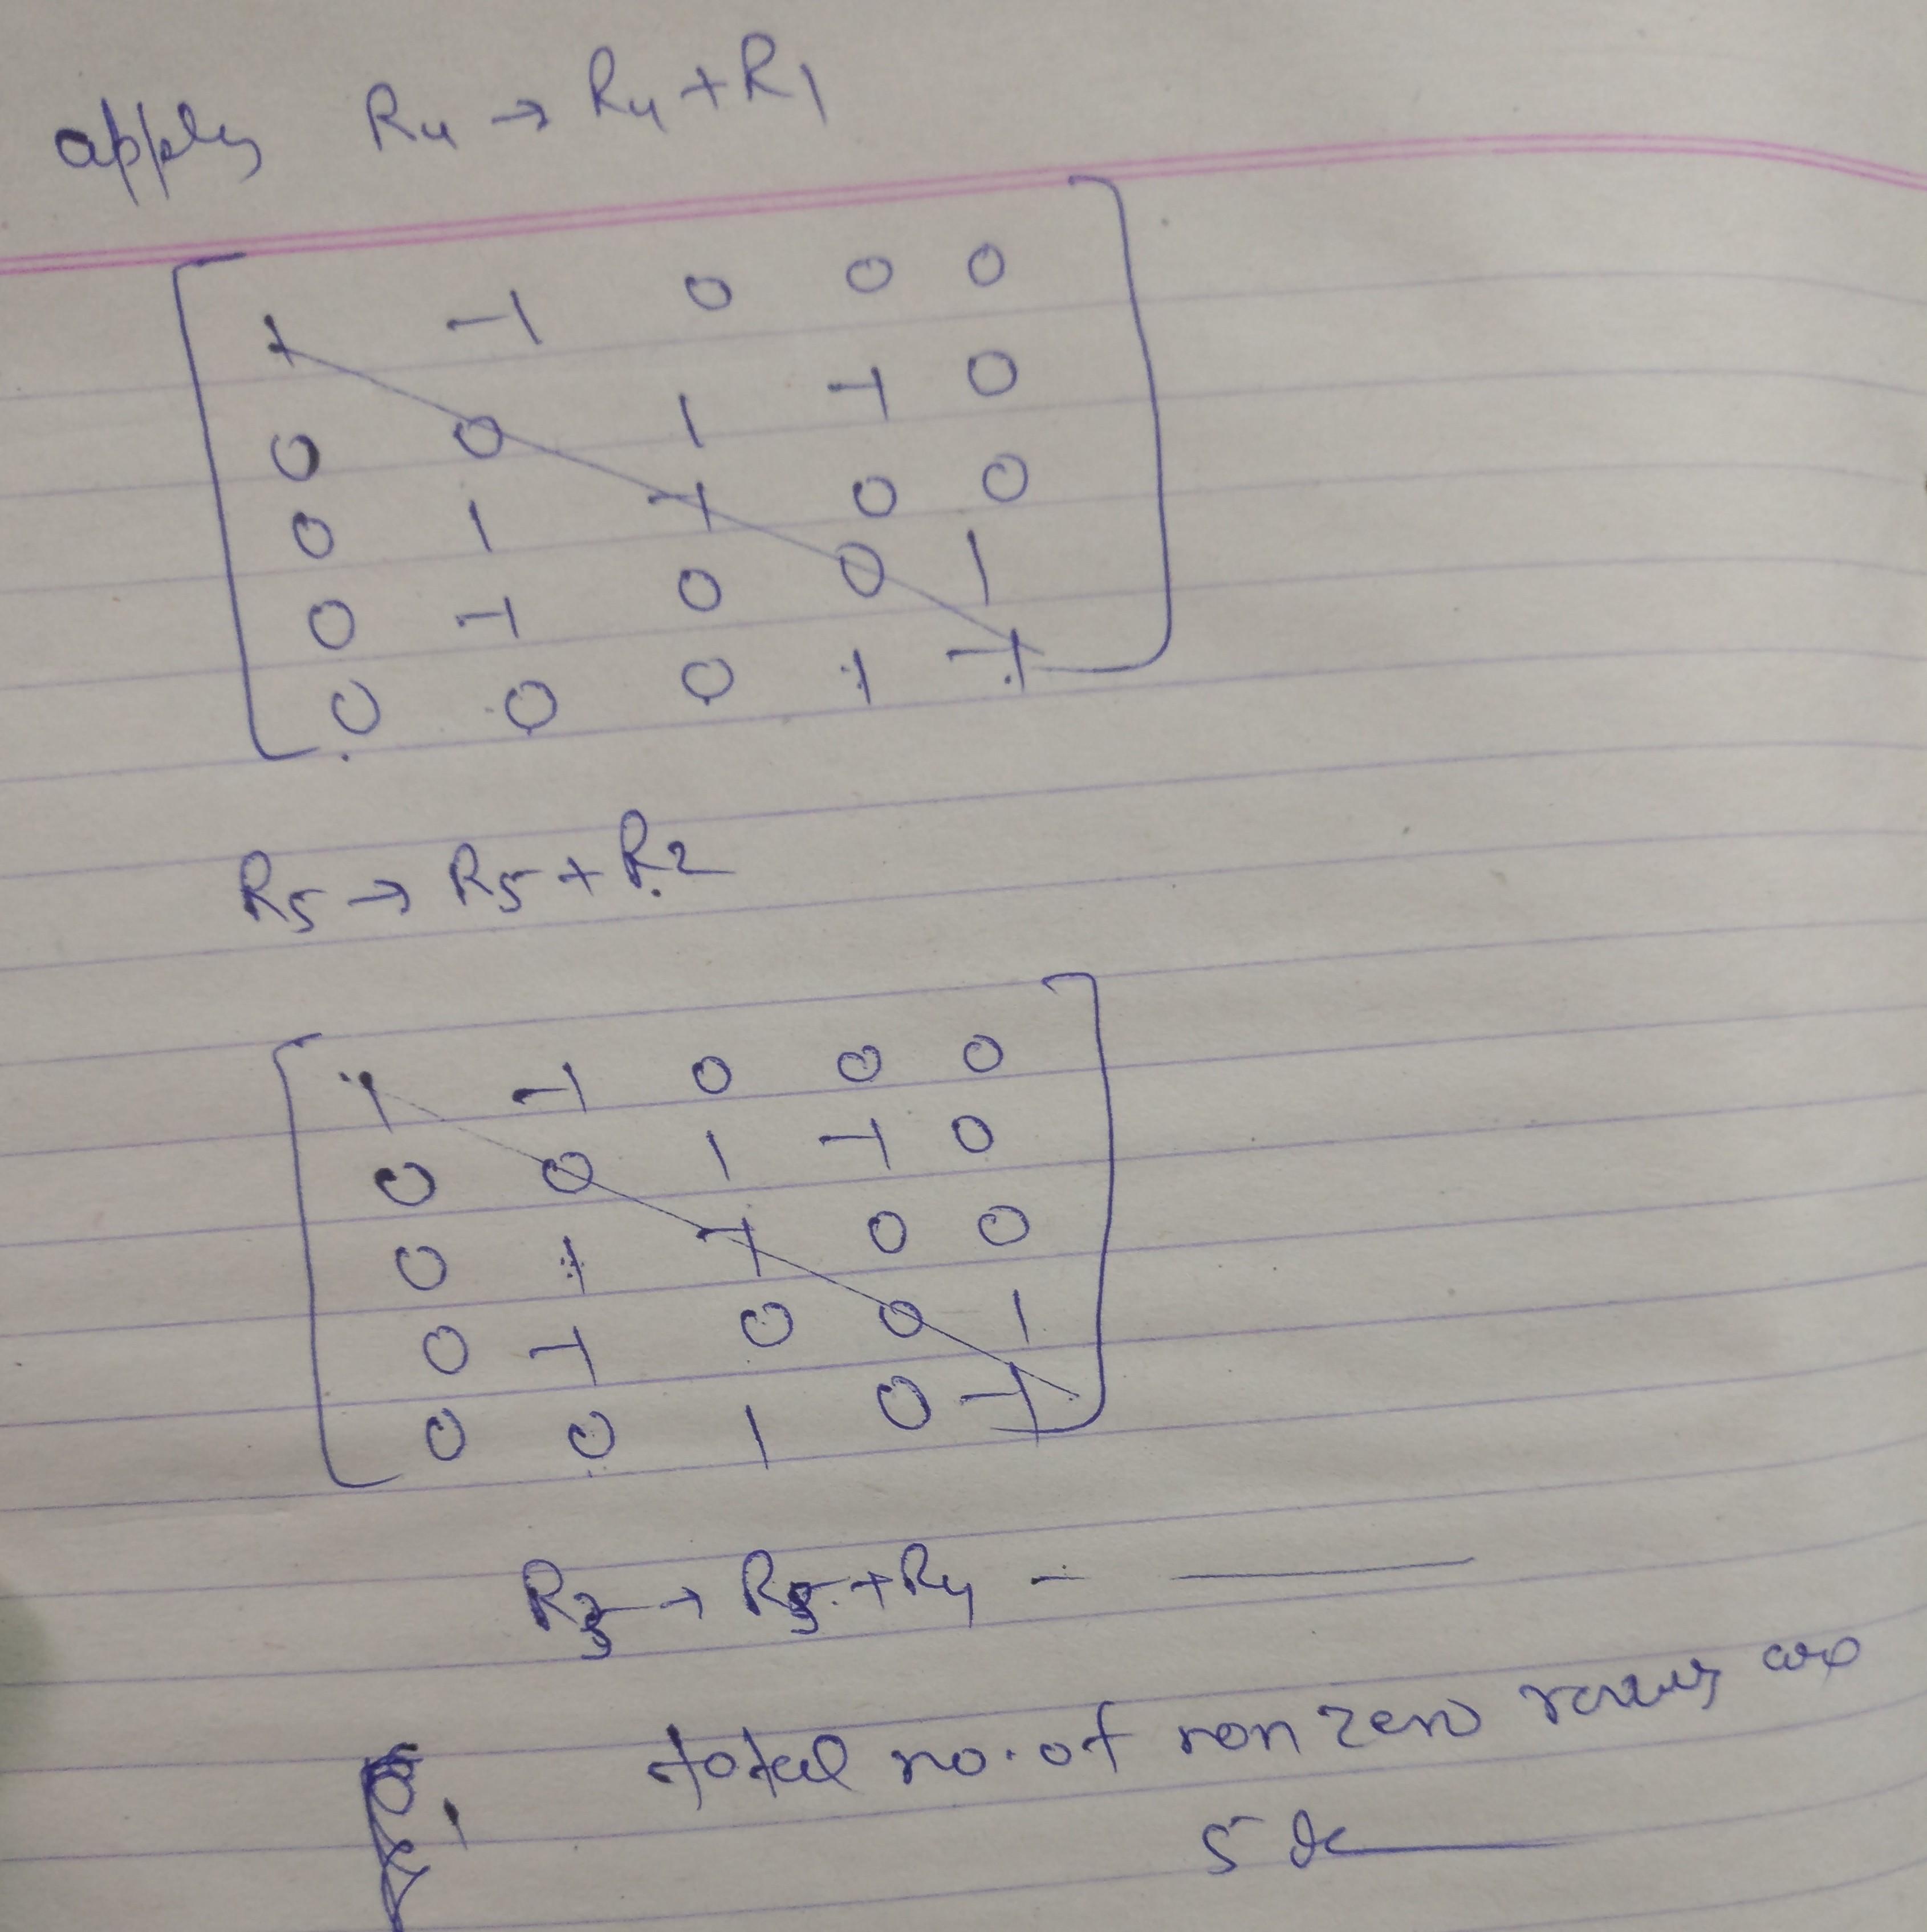 apply R4 → R4 + R1
1 -1 0 0 0
0 0 1 -1 0
0 1 -1 0 0
0 -1 0 0 1
0 0 0 1 -1
R5 → R5 + R2
1 -1 0 0 0
0 0 1 -1 0
0 1 -1 0 0
0 -1 0 0 1
0 0 1 0 -1
R3 → R3 + R4 -
total no. of non zero rows are
5